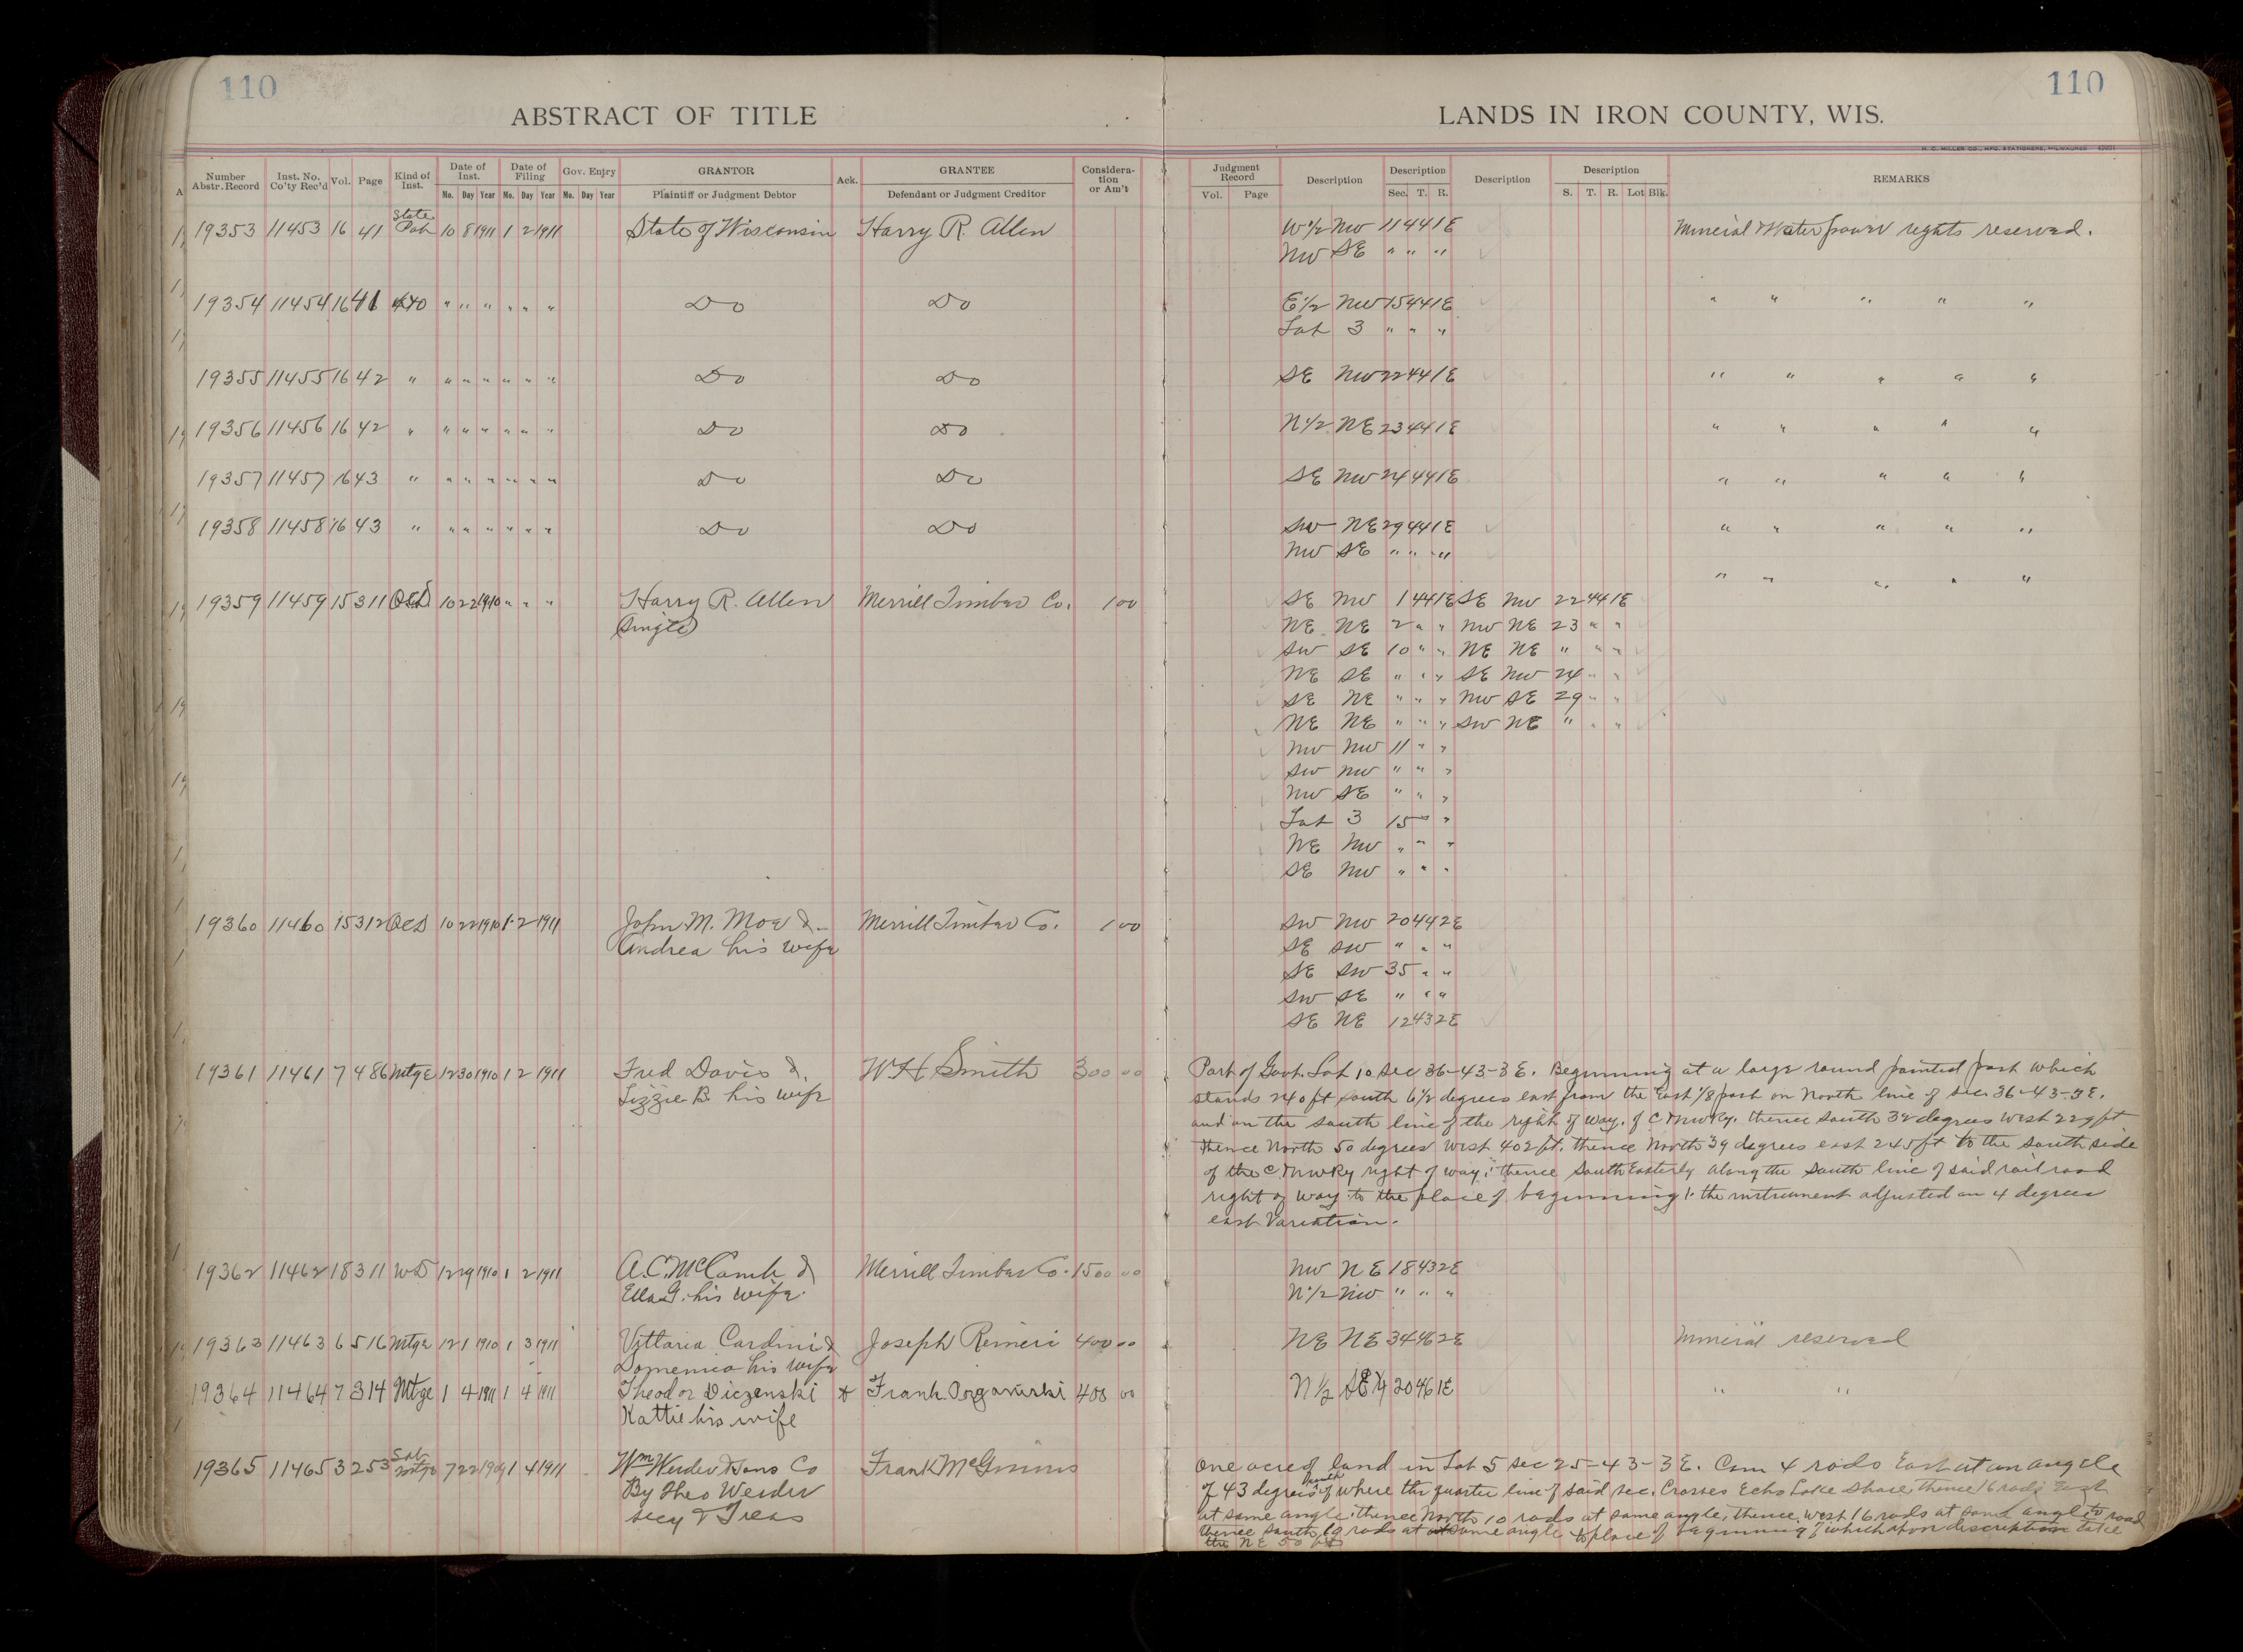 110
110
ABSTRACT OF TITLE
LANDS IN IRON COUNTY, WIS.
H. C. MILLER CO., MFG. STATIONERS, MILWAUKEE
Number Abstr. Record Inst. No. Co'ty Rec'd Vol. Page Kind of Inst. Date of Inst. Date of Filing Gov. Entry GRANTOR Ack. GRANTEE Considera-tion or Am't Judgment Record Description Description Description Description REMARKS
No. Day Year No. Day Year No. Day Year Plaintiff or Judgment Debtor Defendant or Judgment Creditor Vol. Page Sec. T. R. S. T. R. Lot Blk.
19353 11453 16 41 State Pat 10 8 1911 1 2 1911 State of Wisconsin Harry R. Allen W 1/2 NW 11 44 1E Mineral & Water power rights reserved.
NW SE " " "
19354 11454 16 41 " " " " " " Do Do E 1/2 NW 15 44 1E " " " " "
Lot 3 " " "
19355 11455 16 42 " " " " " " " Do Do SE NW 22 44 1E " " " " "
19356 11456 16 42 " " " " " " " Do Do N 1/2 NE 23 44 1E " " " " "
19357 11457 16 43 " " " " " " " Do Do SE NW 24 44 1E " " " " "
19358 11458 16 43 " " " " " " " Do Do SW NE 29 44 1E " " " " "
NW SE " " "
" " " " "
19359 11459 15 311 QCD 10 22 1910 " " " Harry R. Allen Merrill Timber Co. 1 00 SE NW 1 44 1E SE NW 22 44 1E
Single NE NE 2 " " NW NE 23 " "
SW SE 10 " " NE NE " " "
NE SE " " " SE NW 24 " "
SE NE " " " NW SE 29 " "
NE NE " " " SW NE " " "
NW NW 11 " "
SW NW " " "
NW SE " " "
Lot 3 15 " "
NE NW " " "
SE NW " " "
19360 11460 15 312 QCD 10 22 1910 1 2 1911 John M. Moe & Merrill Timber Co. 1 00 SW NW 20 44 2E
Andrea his wife SE SW " " "
SE SW 35 " "
SW SE " " "
SE NE 12 43 2E
19361 11461 7 486 Mtge 12 30 1910 1 2 1911 Fred Davis & W H Smith 300 00 Part of Govt. Lot 10 Sec 36-43-3E. Beginning at a large round painted post which
Lizzie B. his wife stands 240 ft south 6 1/2 degrees east from the East 1/8 post on North line of Sec. 36-43-3E.
and on the south line of the right of way of C & NW Ry. thence South 38 degrees West 229 ft
thence North 50 degrees West 402 ft. thence North 39 degrees east 245 ft to the south side
of the C & NW Ry right of way; thence South Easterly along the South line of said railroad
right of way to the place of beginning; the instrument adjusted on 4 degrees
east Variation.
19362 11462 18 311 WD 12 29 1910 1 2 1911 A.C. McComb & Merrill Timber Co. 1500 00 NW NE 18 43 2E
Ella G. his wife. N 1/2 NW " " "
19363 11463 6 516 Mtge 12 1 1910 1 3 1911 Vittaria Cardini & Joseph Rimeri 400 00 NE NE 34 46 2E Mineral reserved
Domenica his wife
19364 11464 7 314 Mtge 1 4 1911 1 4 1911 Theodor Diczenski & Frank 400 00 N 1/2 SE 1/4 20 46 1E " "
Kattie his wife
19365 11465 3 253 Sat Mtge 7 22 1909 1 4 1911 Wm Werder & Sons Co Frank McGinnis One acre of land in Lot 5 Sec 25-43-3E. Com 4 rods East at an angle
By Theo Werder of 43 degrees South of where the quarter line of said sec. Crosses Echo Lake shore, thence 16 rods East
Secy & Treas at same angle; thence North 10 rods at same angle, thence West 16 rods at same angle to road
thence South 10 rods at same angle to place of beginning, which upon description take
the NE 50 ft